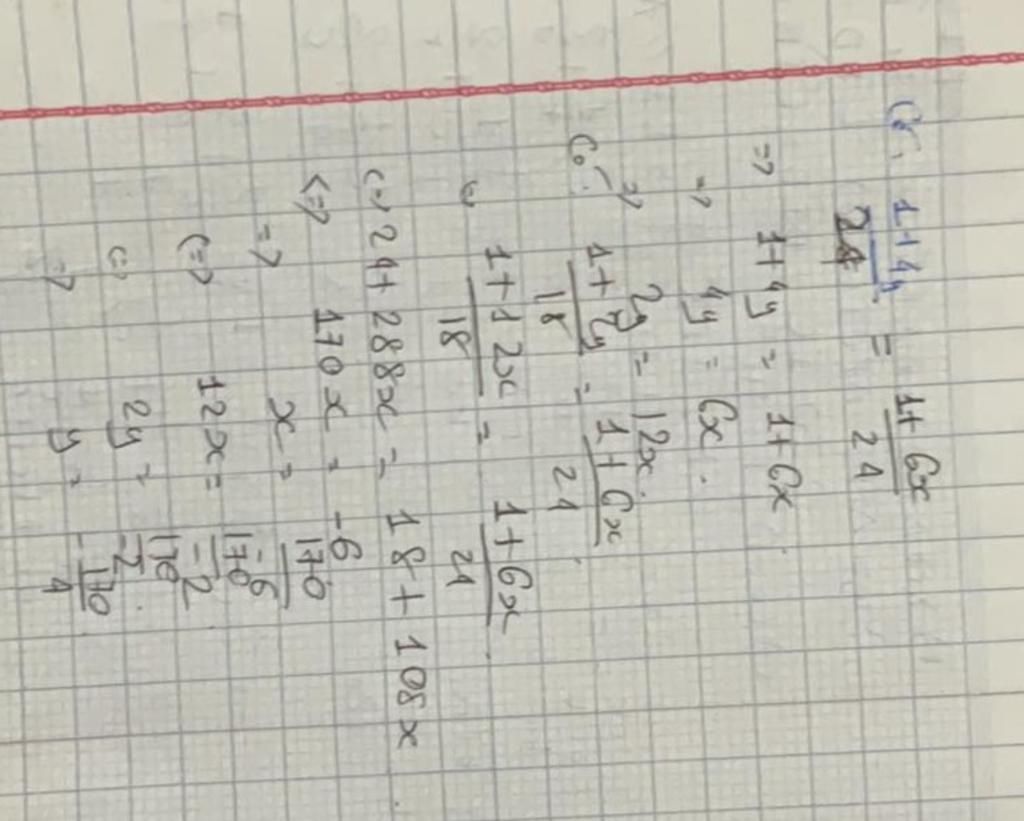 Có: \frac{1+4y}{24} = \frac{1+6x}{24}
=> 1+4y = 1+6x
=> 4y = 6x.
=> 2y = 12x.
Có: \frac{1+2y}{18} = \frac{1+6x}{24}
\frac{1+12x}{18} = \frac{1+6x}{24}
(=) 24+288x = 18+108x
<=> 170x = -6
=> x = \frac{170}{-6}
(=) 12x = \frac{170}{-2}
(=) 2y = \frac{170}{-2}.
=> y = -\frac{170}{4}